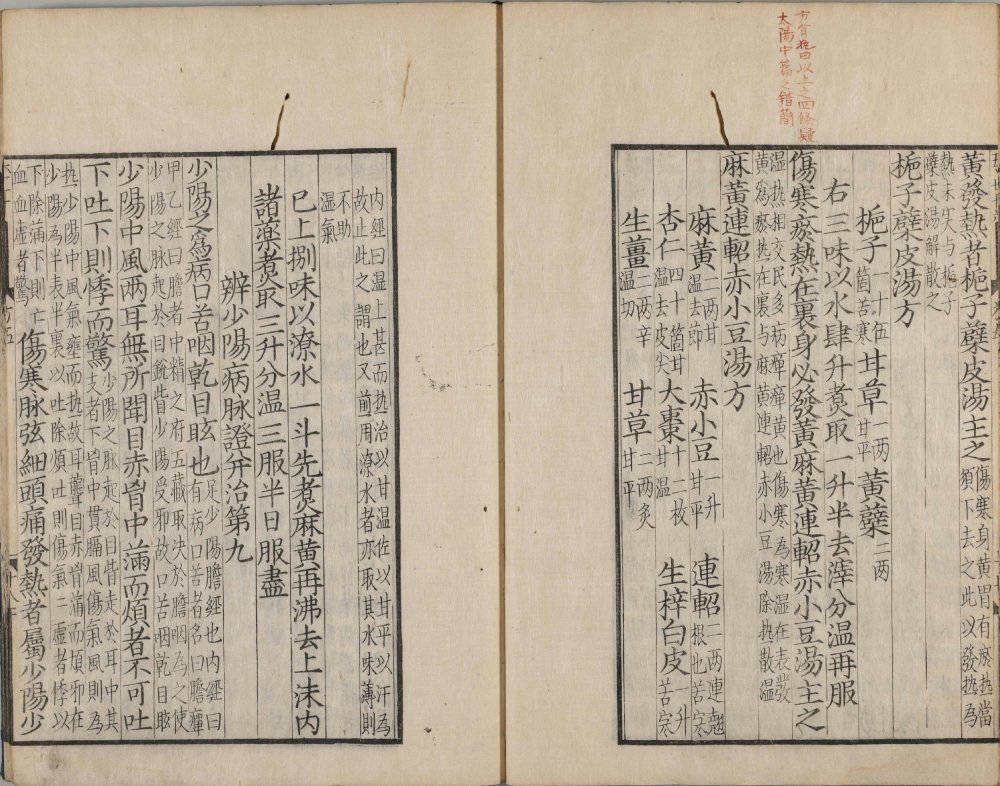 方有執曰以上之四條疑
太陽中篇之錯簡
黃發熱者梔子蘗皮湯主之傷寒身黃胃有瘀热當
須下去之此以發热為
熱未实与梔子
蘗皮湯解散之
梔子蘗皮湯方
梔子一十伍
箇苦寒 甘草一兩
甘平 黃蘗二兩
右三味以水肆升煑取一升半去滓分温再服
傷寒瘀熱在裏身必發黃麻黃連軺赤小豆湯主之
湿热相交民多病癉癉黃也傷寒為寒湿在表發
黃為瘀热在裏与麻黃連軺赤小豆湯除热散温
麻黃連軺赤小豆湯方
麻黃二兩甘
温去節 赤小豆一升
甘平 連軺二兩連翹
根也苦寒
杏仁四十箇甘
温去皮尖 大棗十二枚
甘温 生梓白皮一升
苦寒
生薑二兩辛
温切 甘草二兩炙
甘平
内經曰湿上甚而热治以甘温佐以甘平以汗為
故止此之謂也又前用潦水者亦取其水味薄則
不助
湿氣
已上捌味以潦水一斗先煑麻黃再沸去上沫内
諸藥煑取三升分温三服半日服盡
辨少陽病脉證并治第九
少陽之為病口苦咽乾目眩也足少陽膽經也内經曰
有病口苦者名曰膽癉
甲乙經曰膽者中精之府五藏取决於膽咽為之使
少陽之脉起於目銳眥少陽受邪故口苦咽乾目眩
少陽中風兩耳無所聞目赤胷中滿而煩者不可吐
下吐下則悸而驚少陽之脉起於目眥走於耳中其
支者下胷中貫膈風傷氣風則為
热少陽中風氣壅而热故耳聾目赤胷滿而煩邪在
少陽為半表半裏以吐除煩吐則傷氣二虛者悸以
下除滿下則亡
血血虛者驚 傷寒脉弦細頭痛發熱者屬少陽少